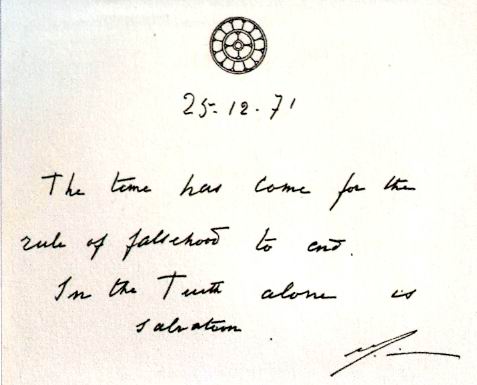 25-12-71
The time has come for the
rule of falsehood to end.
In the Truth alone is
salvation